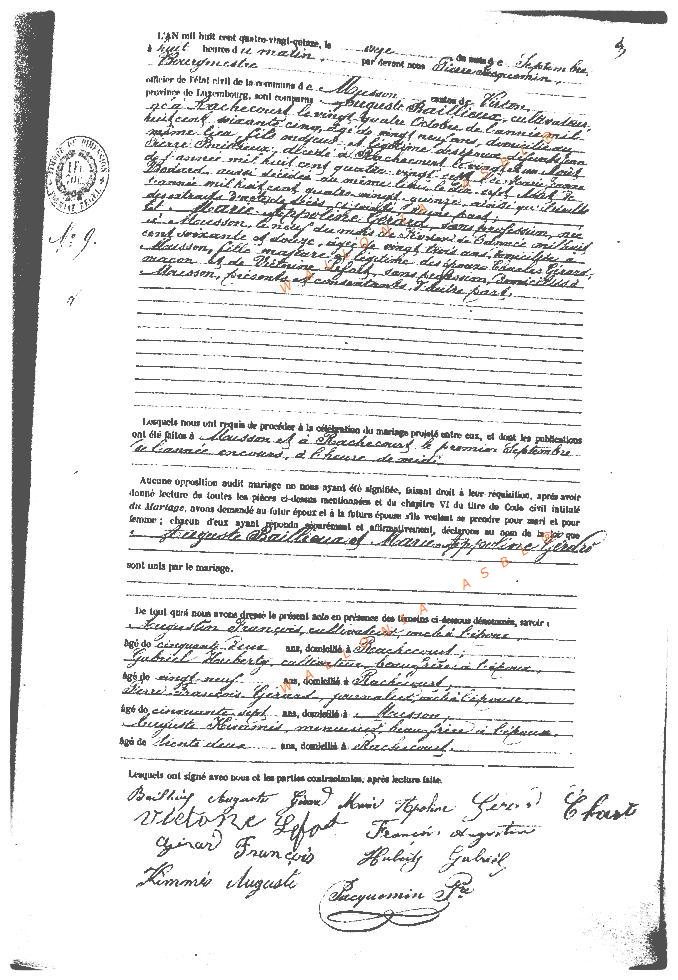 L'AN mil huit cent quatre-vingt-quinze, le onze du mois de Septembre,
à huit heures du matin, par devant nous Pierre Jacquemin,
Bourgmestre
officier de l'état civil de la commune de Musson, canton de Virton,
province de Luxembourg, sont comparus Auguste Baillieux, cultivateur,
né à Rachecourt le vingt quatre Octobre de l'année mil
huit cent soixante cinq, âgé de vingt neuf ans, domicilié au
même lieu, fils majeur et légitime des époux
Pierre Baillieux, décédé à Rachecourt le vingt
de l'année mil huit cent quatre vingt et de
Bodard, aussi décédée au même lieu le
l'année mil huit cent quatre-vingt quinze, ainsi qu'il résulte
des extraits d'actes de décès d'une part;
Et Marie Appoline Gérard, sans profession, née
à Musson, le neuf du mois de Février de l'année mil huit
cent soixante et douze, âgée de vingt trois ans, domiciliée à
Musson, fille majeure et légitime des époux Charles Gérard,
maçon, et de Victorine Lefort, sans profession, domiciliés à
Musson, présents et consentants, d'autre part.
Lesquels nous ont requis de procéder à la célébration du mariage projeté entre eux, et dont les publications
ont été faites à Musson et à Rachecourt, le premier Septembre
de l'année en cours, à l'heure de midi.
Aucune opposition audit mariage ne nous ayant été signifiée, faisant droit à leur réquisition, après avoir
donné lecture de toutes les pièces ci-dessus mentionnées et du chapitre VI du titre du Code civil intitulé
du Mariage, avons demandé au futur époux et à la future épouse s'ils veulent se prendre pour mari et pour
femme ; chacun d'eux ayant répondu séparément et affirmativement, déclarons au nom de la loi que
Auguste Baillieux et Marie Appoline Gérard
sont unis par le mariage.
De tout quoi nous avons dressé le présent acte en présence des témoins ci-dessous dénommés, savoir :
Augustin François, cultivateur, oncle à l'époux,
âgé de cinquante deux ans, domicilié à Rachecourt;
Gabriel Huberty, cultivateur, beau frère à l'époux,
âgé de vingt neuf ans, domicilié à Rachecourt,
Pierre François Gérard, journalier, oncle à l'épouse
âgé de cinquante sept ans, domicilié à Musson,
Auguste Kimmès, menuisier, beau frère à l'époux,
âgé de trente deux ans, domicilié à Rachecourt.
Lesquels ont signé avec nous et les parties contractantes, après lecture faite.
Baillieux Auguste Girard Marie Apoline Gérard Charles
Victorine Lefort François Augustin
Girard François Huberty Gabriel
Kimmès Auguste
Jacquemin Pre
No 9.
WALLONIA ASBL
WALLONIA ASBL